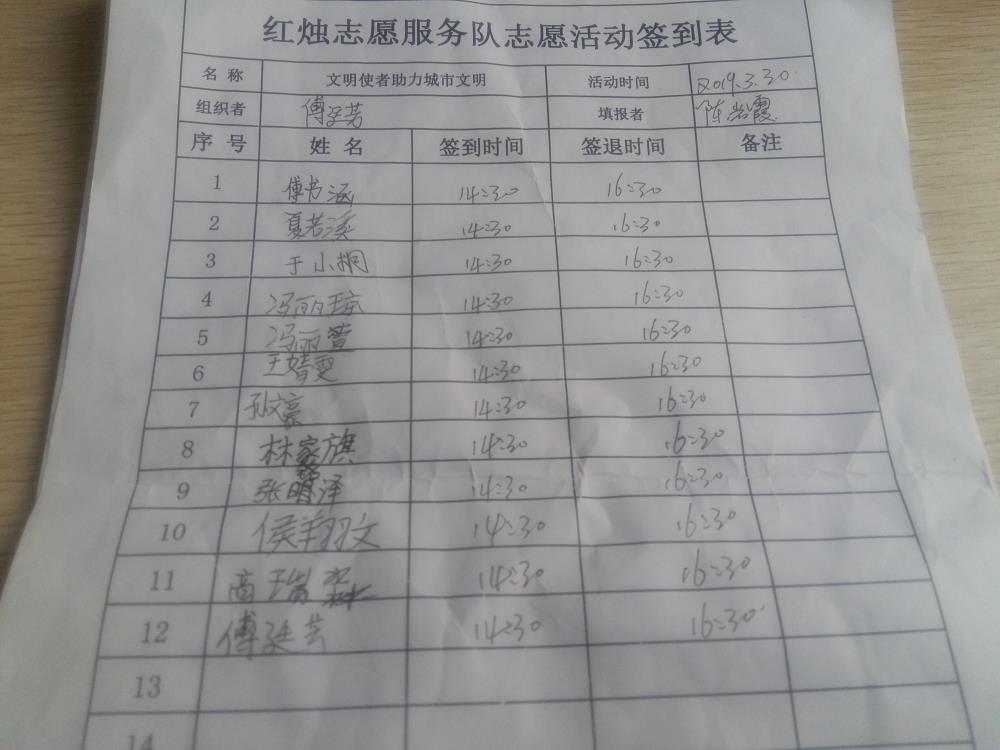 红烛志愿服务队志愿活动签到表
名 称 文明使者助力城市文明 活动时间 2019.3.30.
组织者 傅廷芸 填报者 陈岩霞
序 号 姓 名 签到时间 签退时间 备注
1 傅书涵 14:30 16:30
2 夏若溪 14:30 16:30
3 于小桐 14:30 16:30
4 冯丽琼 14:30 16:30
5 冯丽萱 14:30 16:30
6 王婧雯 14:30 16:30
7 孙文豪 14:30 16:30
8 林家旗 14:30 16:30
9 张明泽 14:30 16:30
10 侯翔文 14:30 16:30
11 商瑞 14:30 16:30
12 傅廷芸 14:30 16:30
13
14